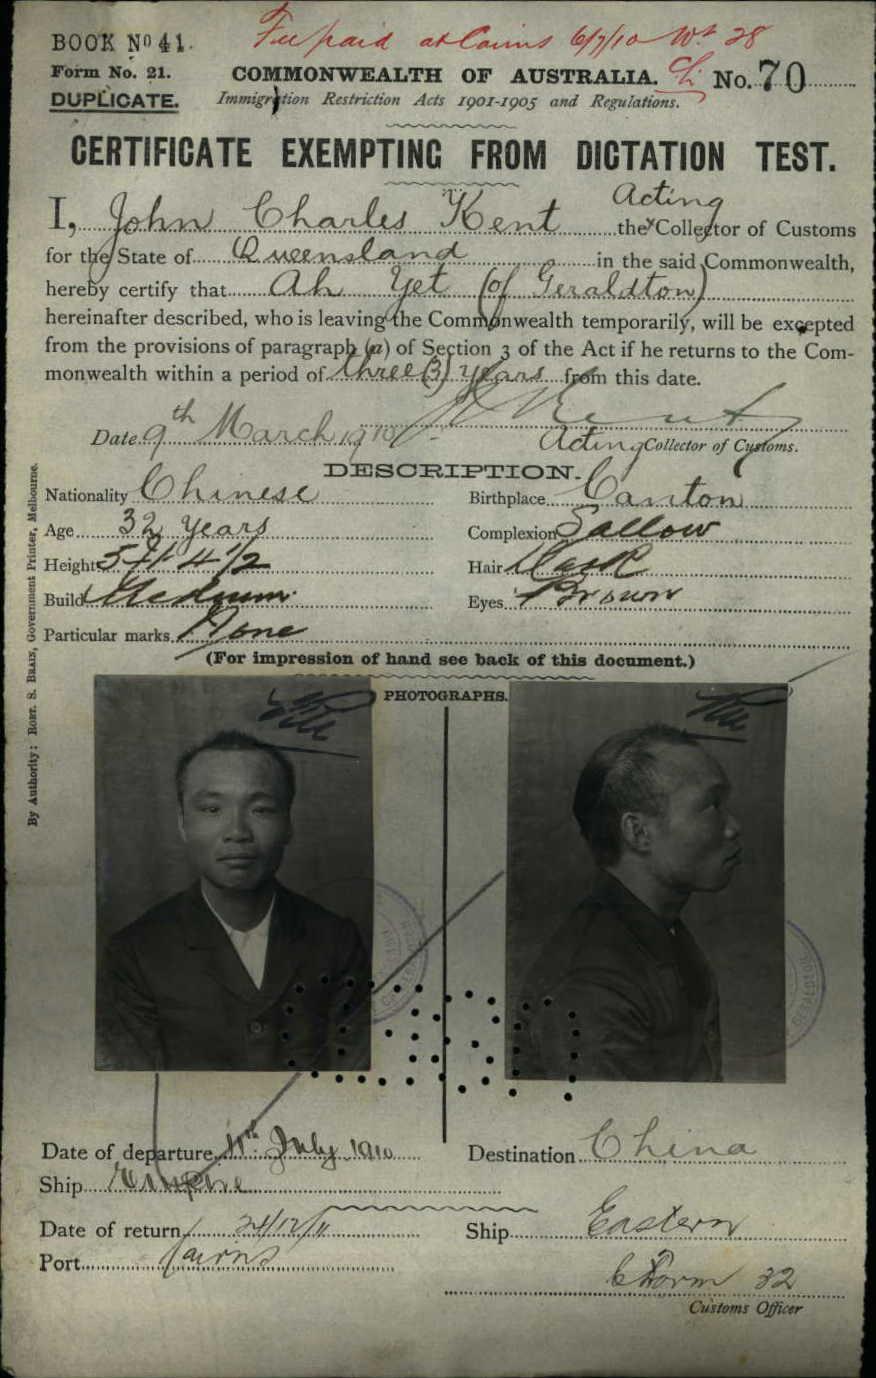 Fee paid at Cairns 6/7/10 Wt 28
BOOK No 41.
Form No. 21.
COMMONWEALTH OF AUSTRALIA.
No. 70
DUPLICATE.
Immigration Restriction Acts 1901-1905 and Regulations.
CERTIFICATE EXEMPTING FROM DICTATION TEST.
Acting
I, John Charles Kent the Collector of Customs
for the State of Queensland in the said Commonwealth,
hereby certify that Ah Yet (of Geraldton)
hereinafter described, who is leaving the Commonwealth temporarily, will be excepted
from the provisions of paragraph (a) of Section 3 of the Act if he returns to the Com-
monwealth within a period of three (3) years from this date.
J C Kent
Date 9th March 1910. Acting Collector of Customs.
DESCRIPTION.
Nationality Chinese Birthplace Canton
Age 32 years Complexion Sallow
Height 5 ft 4 1/2 Hair Dark
Build Medium Eyes Brown
Particular marks None
(For impression of hand see back of this document.)
PHOTOGRAPHS.
By Authority: ROBT. S. BRAIN, Government Printer, Melbourne.
Date of departure 11th July 1910 Destination China
Ship Empire
Date of return 24/12/11 Ship Eastern
Port Cairns
Form 32
Customs Officer